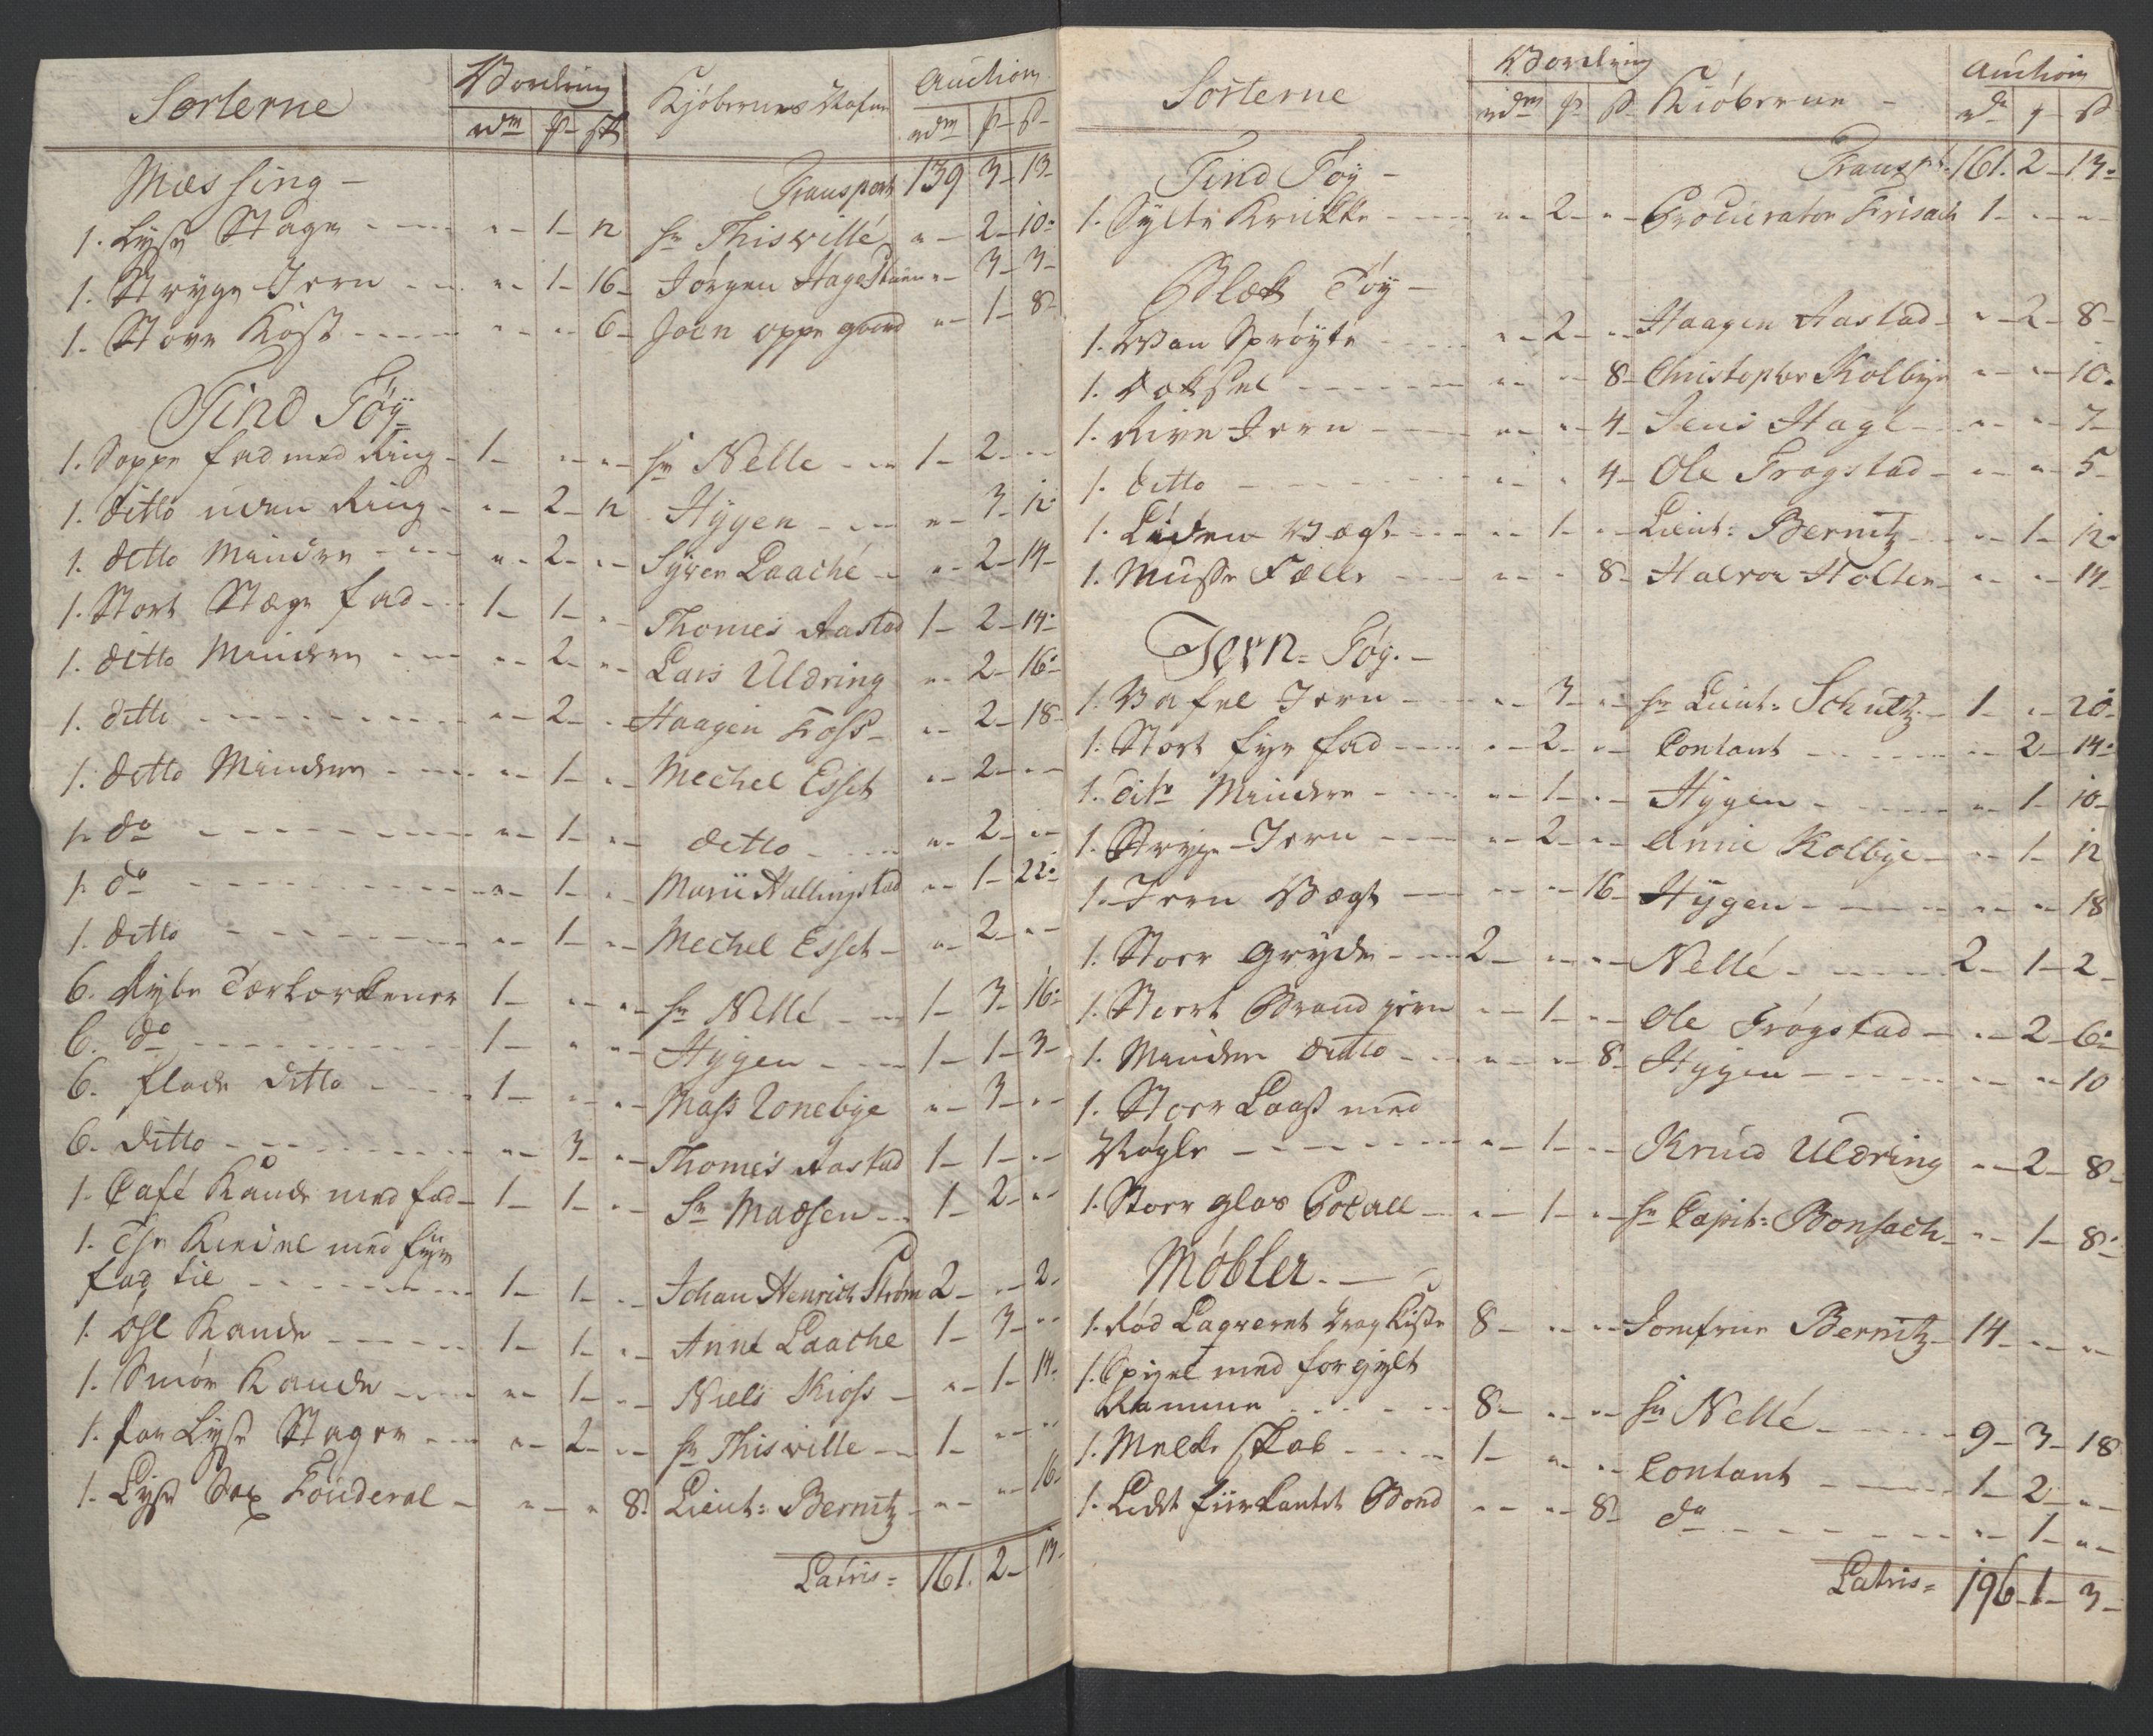 Sorterne Vording Kjøbernes Nafne Auction
rdr ß rdr ß
Messing - Transport 139 3 13
1. Lyse Stage - - - " 1 12 hr Thisvillé " 2 10
1. Stryge Jern - - " 1 16 Jørgen Hagestuen " 3 3
1. Stove Kost - - - " " 6 Joen oppegaard " 1 8
Tind Tøy
1. Soppe fad med Ring - 1 " " hr Nelle - - 1 2 "
1. ditto uden Ring - " 2 12 Hygen - - " 3 12
1. ditto Mindre - - " 2 " Syver Laaché - " 2 14
1. Stort Stege fad - 1 1 " Thomes Aastad 1 2 14
1. ditto Mindre - - " 2 " Lars Uldring " 2 16
1. ditto - - - " 2 " Haagen Foss - " 2 18
1. ditto Mindre - - " 1 " Mechel Esset " 2 "
1. do - - - " 1 " ditto - - " 2 "
1. do - - - " 1 " Marii Hallingstad " 1 22
1. ditto - - - " 1 " Mechel Esset - " 2 "
6. dybe Tærlærkener 1 " " hr Nellé - - 1 3 16
6. do - - - 1 " " Hygen - - 1 1 3
6. flade ditto - - 1 " " Mass Tonebye " 3 "
6. ditto - - - " 3 " Thomes Aastad 1 1 "
1. Café Kande med fad - 1 1 " Sr Madsen - - 1 2 "
1. The Kiedel med fyr
fad til - - - 1 1 " Johan Henrich Strøm 2 " 2
1. øhl Kande - - - 1 1 " Anne Laache 1 3 "
1. Smør Kande - - " 1 " Niels Kioss - " 1 14
1. Par Lyse Stager - - " 2 " hr Thisville - - 1 " "
1. Lyse Sax Fouderal - " " 8 Lieut: Bernitz - " " 16
Latris = 161. 2 13
Sorterne Vording Kiøberne - Auction
rdr ß
Tind Tøy - Transpt 161. 2 13
1. Sylte Krukke - - " 2 " Procurator Frisach 1 " "
Blek Tøy -
1. Van Sprøyte - - " 2 " Haagen Aastad - " 2 8
1. Dæksel - - - " " 8 Christopher Kolbye " " 10
1. Rive Jern - - - " " 4 Jens Hagl - - " " 7
1. ditto - - - " " 4 Ole Frogstad - " " 5
1. Liden Vægt - - " 1 " Lieut: Bernitz - " 1 12
1. Musse Fælle - - " " 8 Halvor Holter - " " 14
Jern = Tøy. -
1. Vafel Jern - - " 3 " hr Lieut: Schultz - 1 " 20
1. Stort fyr fad - - " 2 " Contant - - " 2 14
1. dito Mindre - - " 1 " Hygen - - " 1 10
1. Stryge-Jern - - " 2 " Anne Kolbye - " 1 12
1. Jern Vægt - - " " 16 Hygen - - " " 18
1. Stor Gryde - - 2 " " Nellé - - 2 1 2
1. Stort Brand jern " 1 " Ole Frøgstad - " 2 6
1. Minder ditto - - " " 8 Hygen - - " " 10
1. Stor Laas med
Nøgle - - - " 1 " Knud Uldring " 2 8
1. Stor glas Pocall - " 1 " hr Capit: Bonsach - " 1 8
Møbler. -
1. Rød Laqveret Drag Kiste 8 " " Jomfrue Bernitz - 14 " "
1. Spigel med forgylt
Ramme - - - 8 " " hr Nellé - - 9 3 18
1. Melke Skab - - 1 " " Contant - - 1 2 "
1. Lidt fiirkantet Bord " " 8 do - - - " 1 "
Latris = 196 1 3